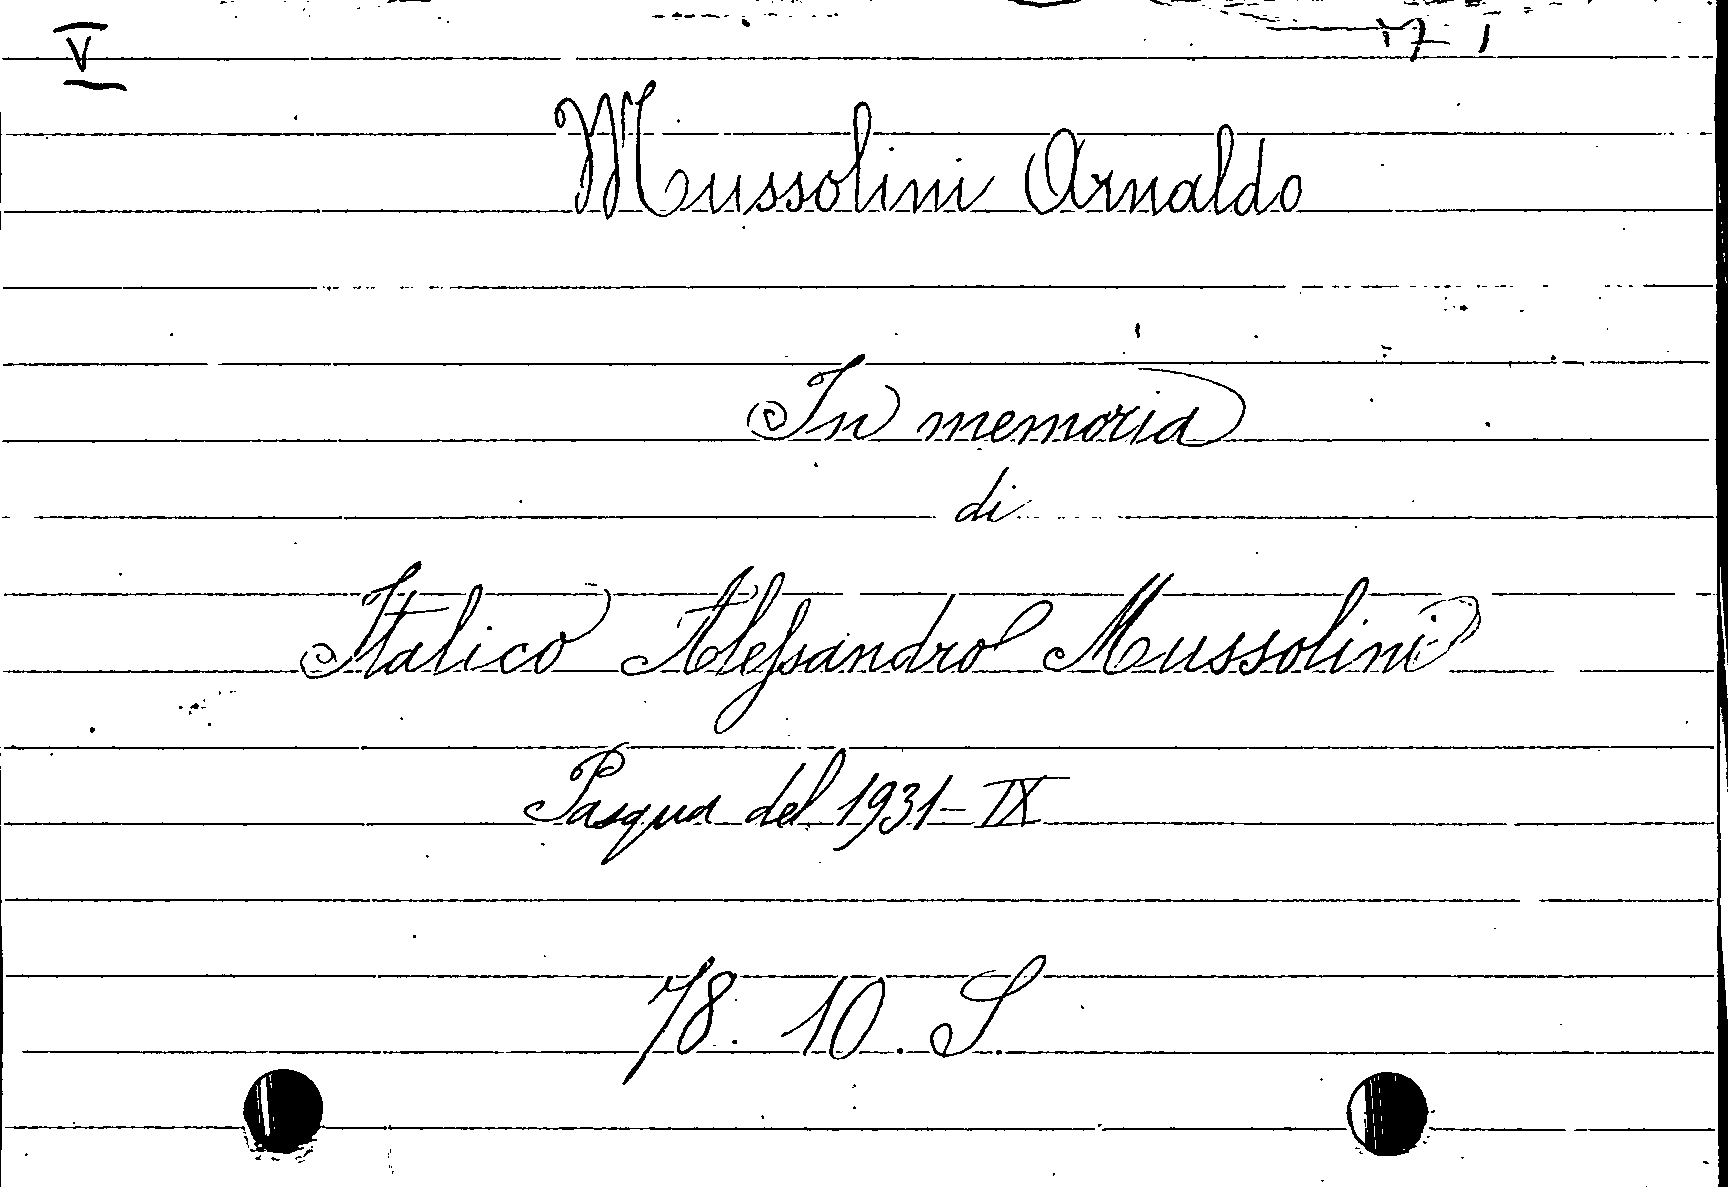 V
Mussolini Arnaldo
In memoria
di
Italico Alessandro Mussolini
Pasqua del 1931-IX
78. 10. S.